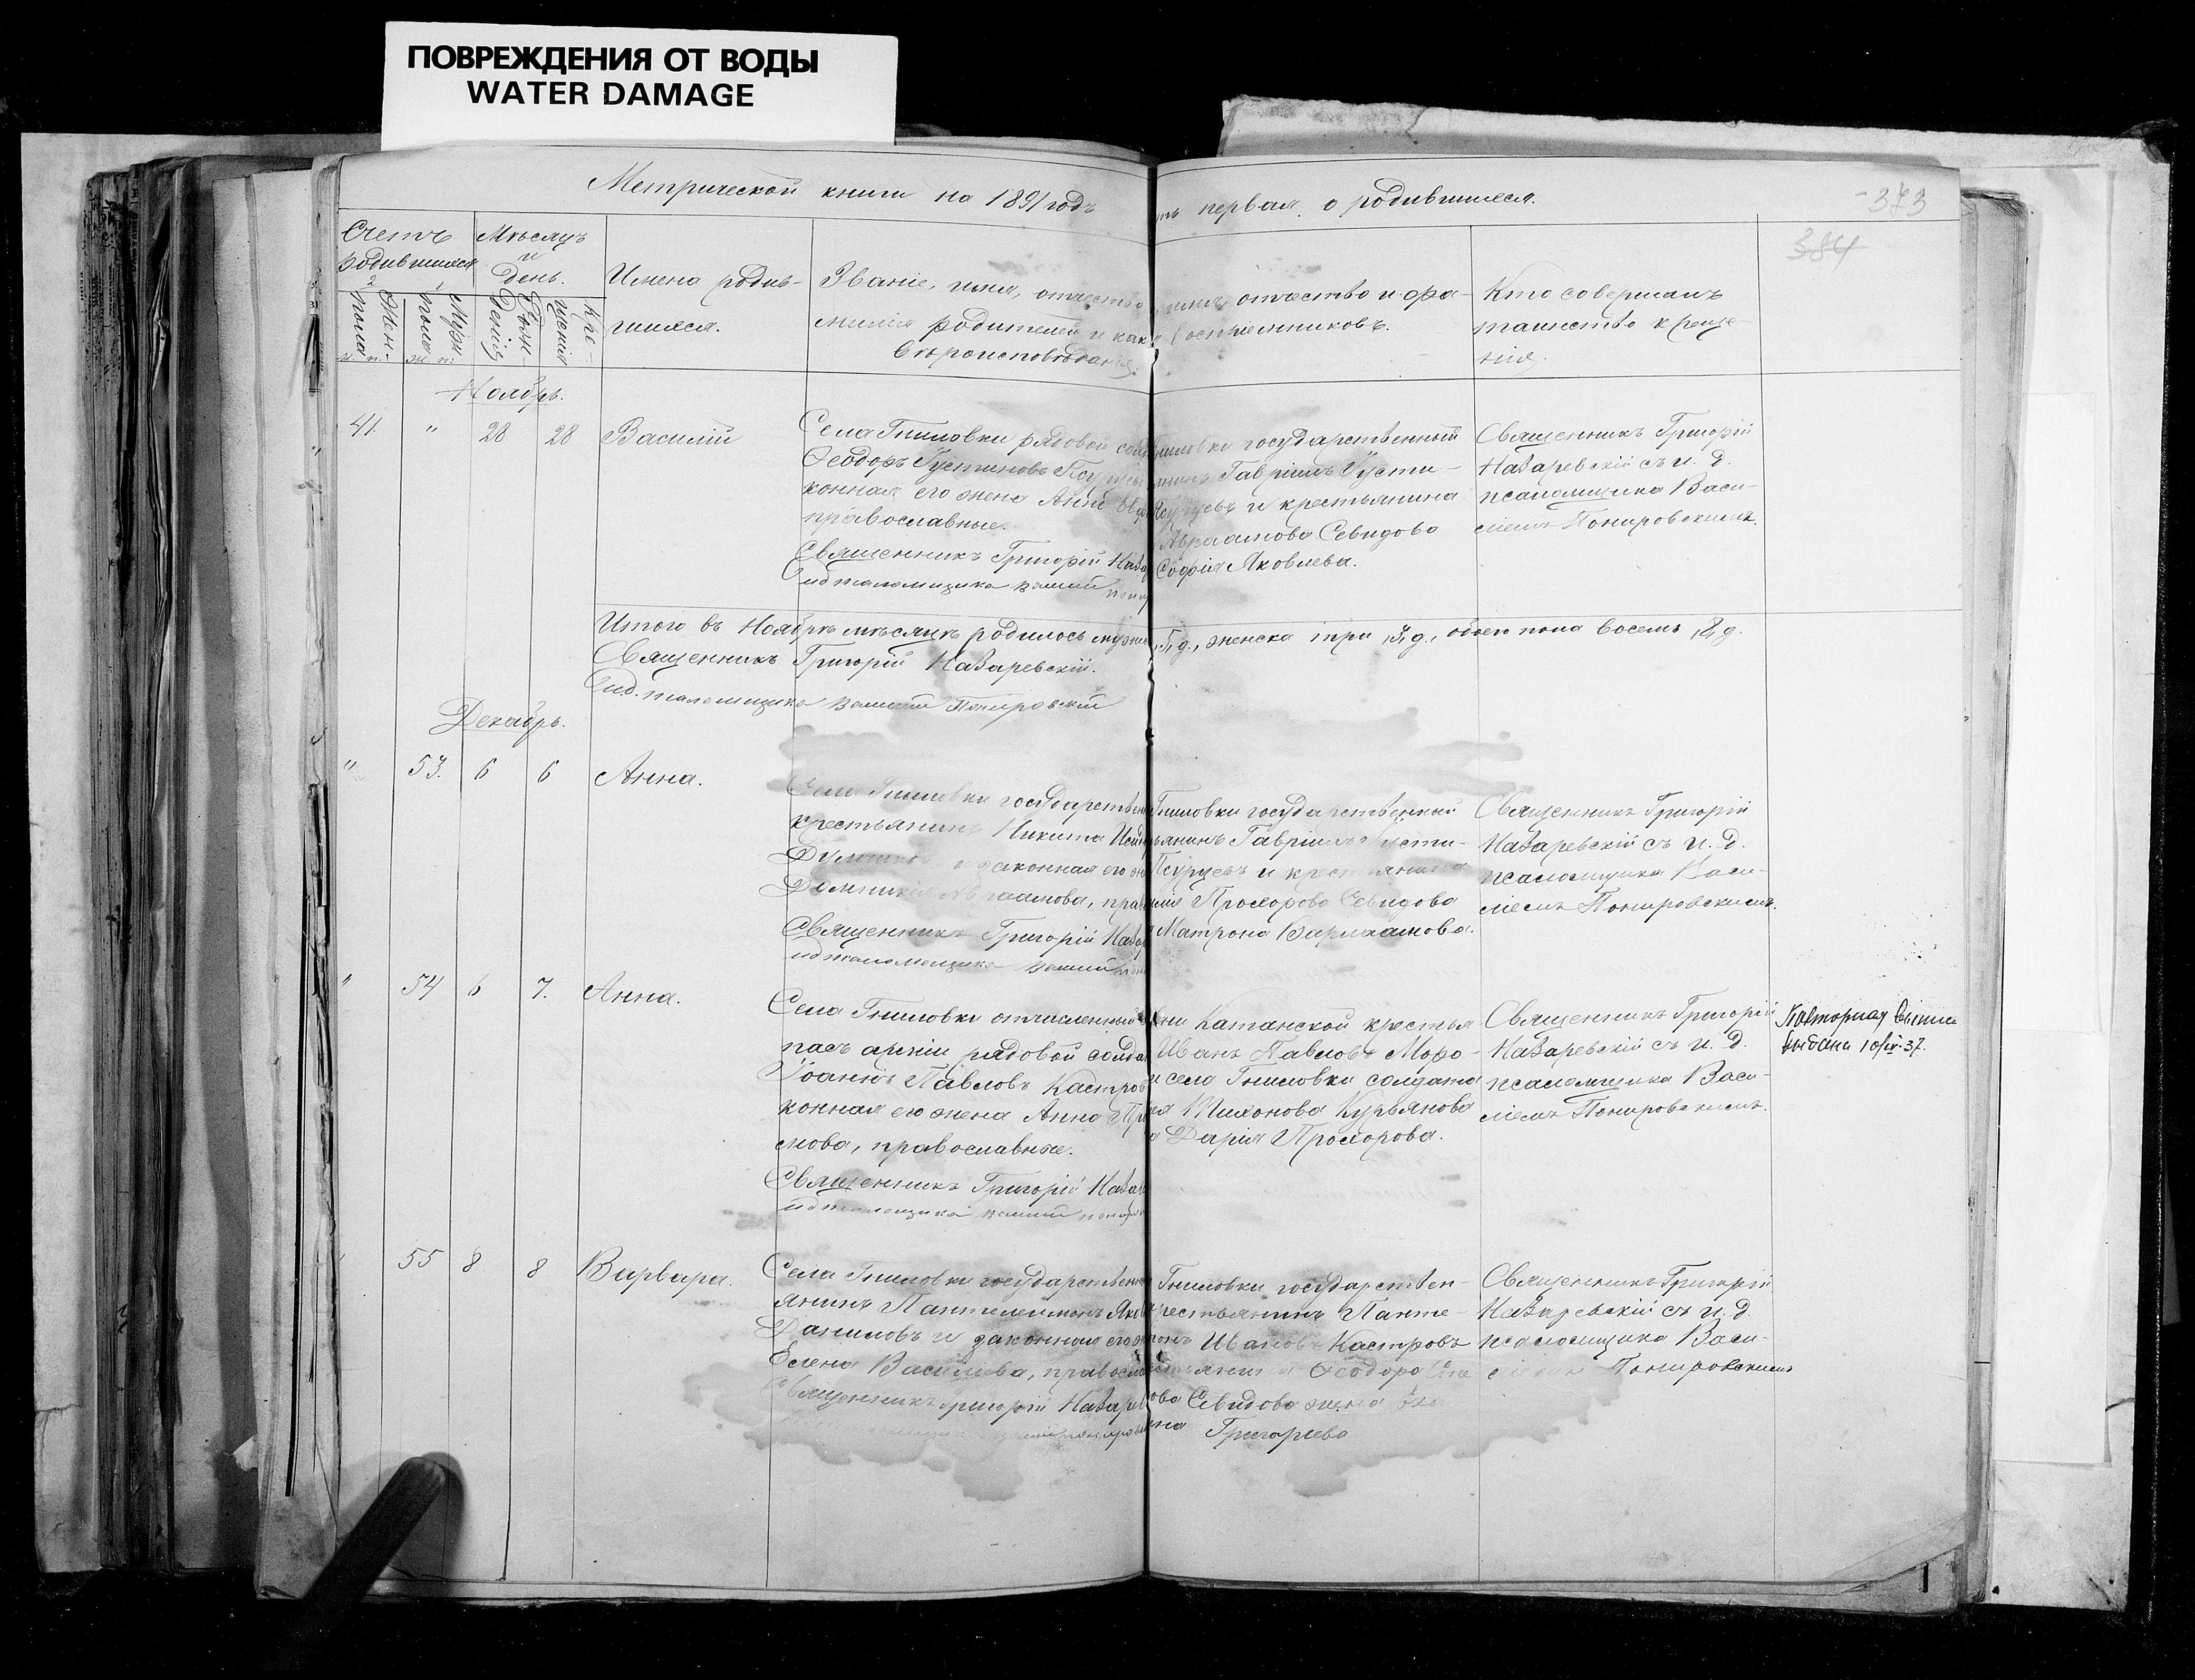 ПОВРЕЖДЕНИЯ ОТ ВОДЫ
WATER DAMAGE
Метрической книги на 1891 годъ
ть первая о родившихся.
373
384
Счетъ родившихся
Мѣсяцъ и день.
Имена родив-
шихся.
Званіе, имя, отчество
милія родителей и как
вѣроисповѣданія.
имя, отчество и фа-
воспріемниковъ.
Кто совершалъ
таинство креще-
нія.
Ноябрь.
41. " 28 28 Василій
Села Гниловки рядовой солд
Ѳеодоръ Іустиновъ
конная его жена Анна
православные.
Священникъ Григорій Назар
и д псаломщика Василій
ниловки государственный
Гавріилъ Іусти-
и крестьянина
Авраамова Севидова
Софія Яковлева.
Священникъ Григорій
Назаревскій съ и. д.
псаломщика Васи-
ліемъ
Итого въ Ноябрѣ мѣсяцѣ родилось муже
5, д., женска три ,3, д., обоего пола восемь ,8, д.
Священникъ Григорій Назаревскій.
И.д. псаломщика Василій
Декабрь.
" 53. 6 6 Анна.
Села Гниловки государствен
крестьянинъ Никита
и законная его
Домникія Авраамова, прав
Священникъ Григорій Назар
и д псаломщика Василій
Гниловки государственный
ьянинъ Гавріилъ Іусти-
и крестьянина
Прохорова Севидова
Матрона Варлаамова.
Священникъ Григорій
Назаревскій съ и. д.
псаломщика Васи-
ліемъ
" 54 6 7. Анна.
Села Гниловки отчисленный
пасъ арміи рядовой солда
Іоаннъ Павловъ Кастров
конная его жена Анна
мова, православные.
Священникъ Григорій Назар
и д псаломщика Василій
Катанской крестья
Иванъ Павловъ Моро-
и села Гниловки солдата
Тихонова Курьянова
Дарія Прохорова.
Священникъ Григорій
Назаревскій съ и. д.
псаломщика Васи-
ліемъ
Повторная
выдана 10/IV-37.
55 8 8 Варвара.
Села Гниловки государственн
янинъ Пантелеимонъ Яков
Даниловъ и законная его
Елена Васильева, правосла
Священникъ Григорій Назарев
Гниловки государствен-
рестьянинъ Панте-
Ивановъ Кастровъ
Ѳеодора
ова Севидова жена
Григорьева
Священникъ Григорій
Назаревскій съ и. д.
псаломщика Васи-
1